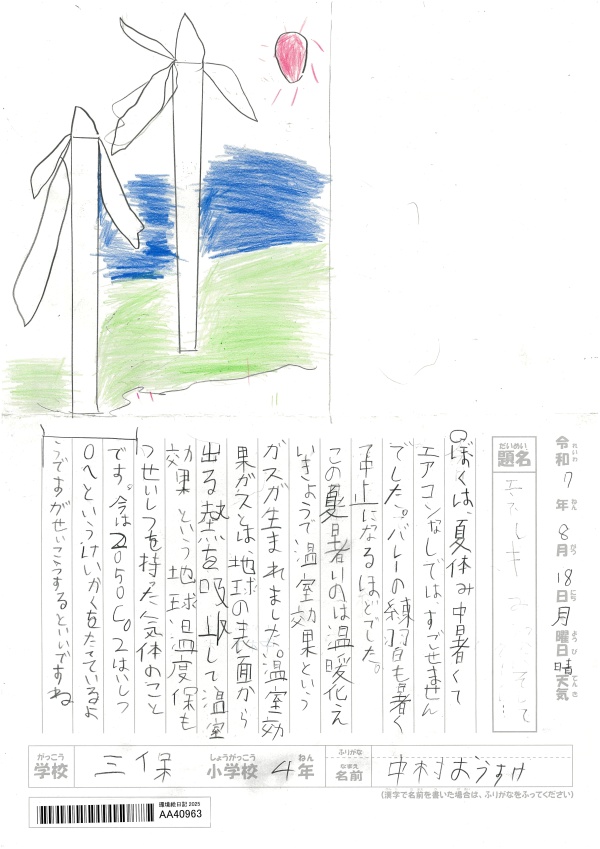 令和 れいわ 7 年 ねん 8 月 がつ 18 日 にち 月 曜日 ようび 晴 天気 てんき
題名 だいめい
ぼくは、夏休み中暑くて
エアコンなしでは、すごせません
でした。バレーの練習も暑く
て中止になるほどでした。
この夏暑いのは温暖化え
いきょうで温室効果という
ガスが生まれました。温室効
果ガスとは、地球の表面から
出る熱を吸収して温室
効果という地球温度保も
つせいしつを持た気体のこと
です。今は2050CO2はいしつ
0へというけいかくをたてているよ
うですがせいこうするといいですね
学校 がっこう 三保 小学校 しょうがっこう 4 年 ねん ふりがな 名前 なまえ 中村おうすけ
(漢字で名前を書いた場合は、ふりがなをふってください)
環境絵日記 2025
AA40963